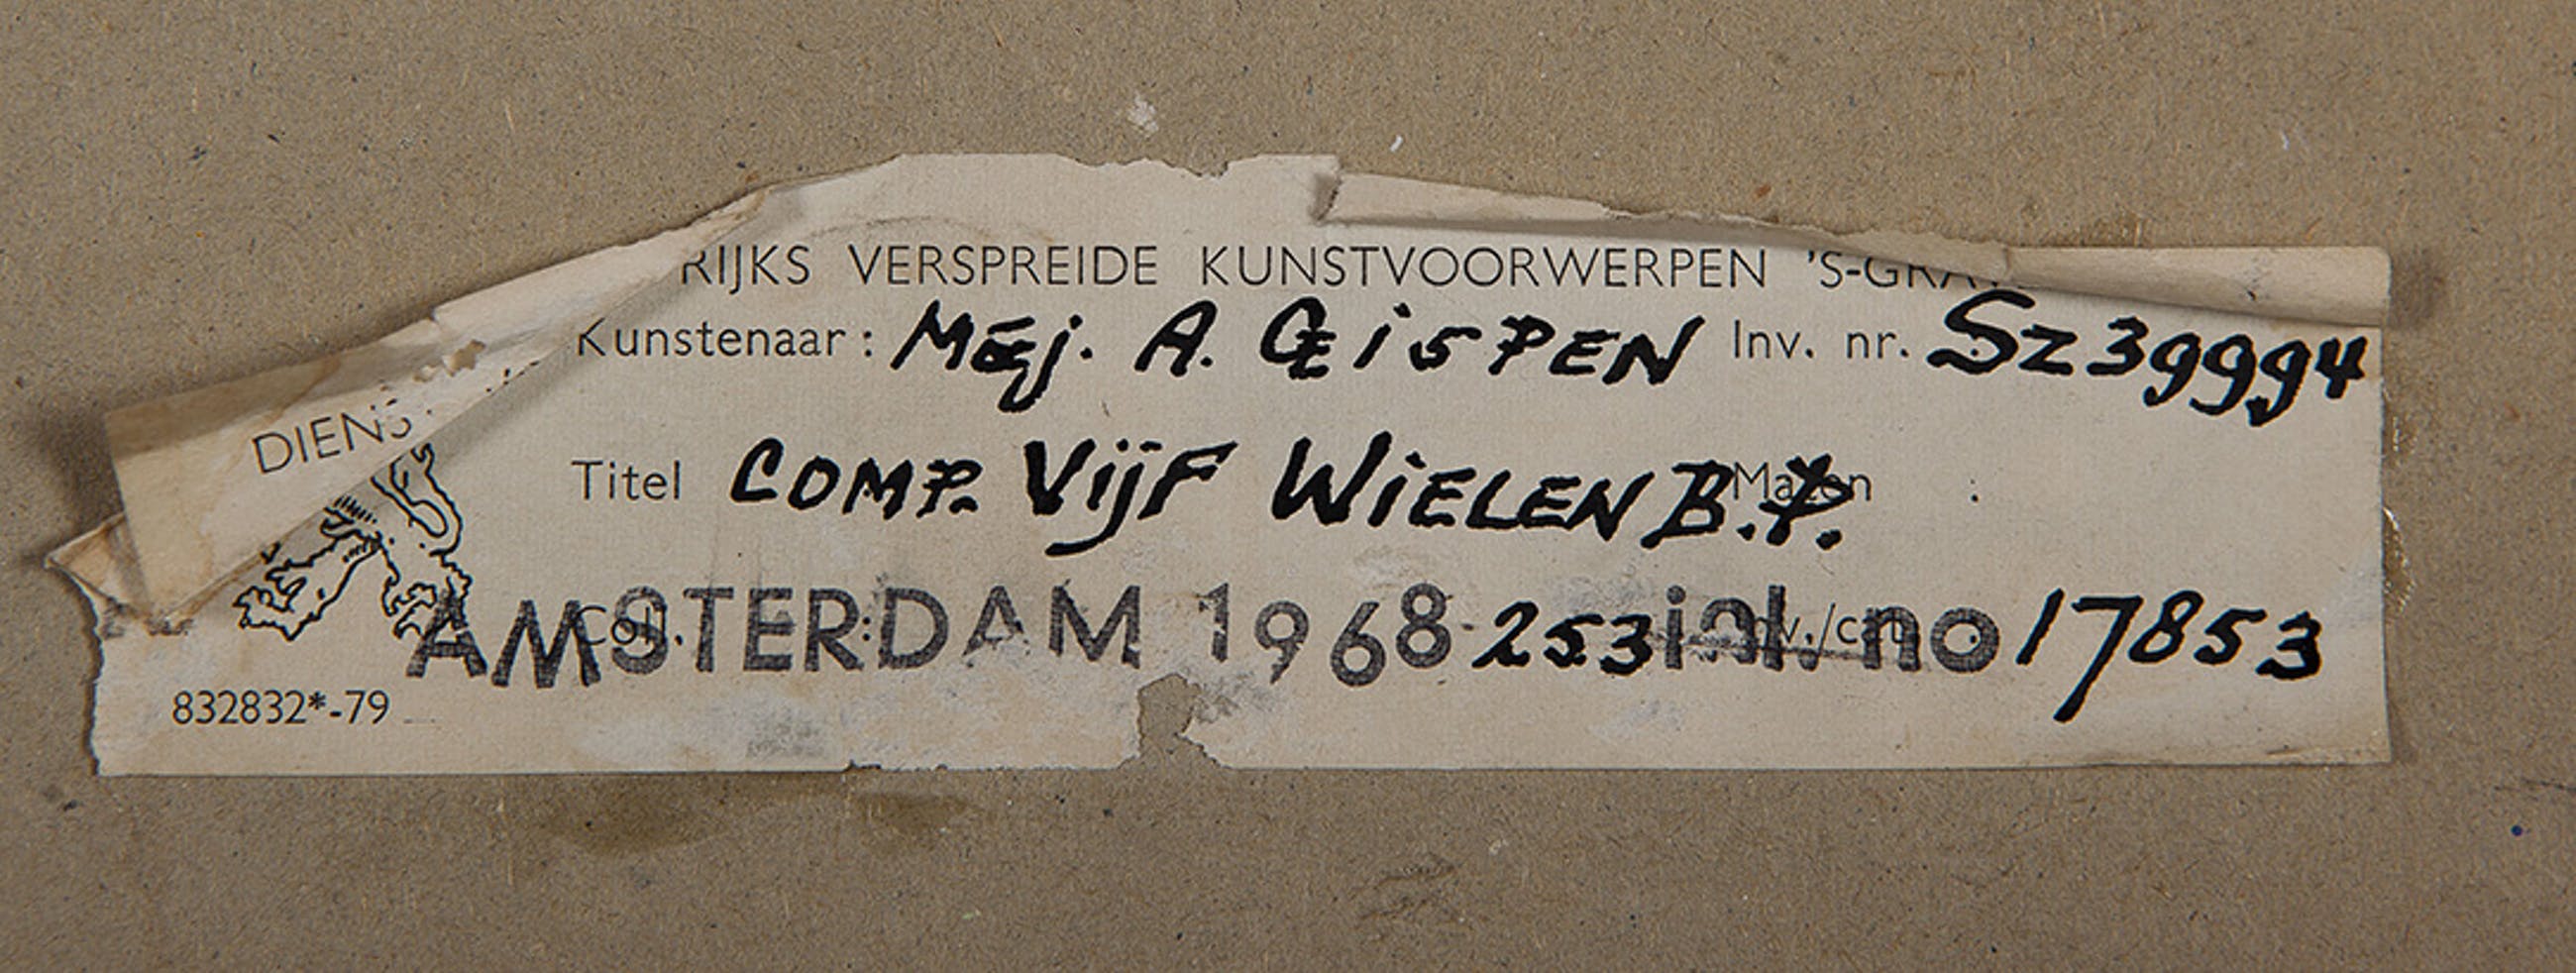 DIENS
RIJKS VERSPREIDE KUNSTVOORWERPEN 'S-GRAV
Kunstenaar: Mej. A. GEISPEN Inv. nr. SZ39994
Titel COMP. VijF WiELEN B.P. Maten :
Coll. : Inv./cat. no :
AMSTERDAM 1968 253 inl. no 17853
832832*-79